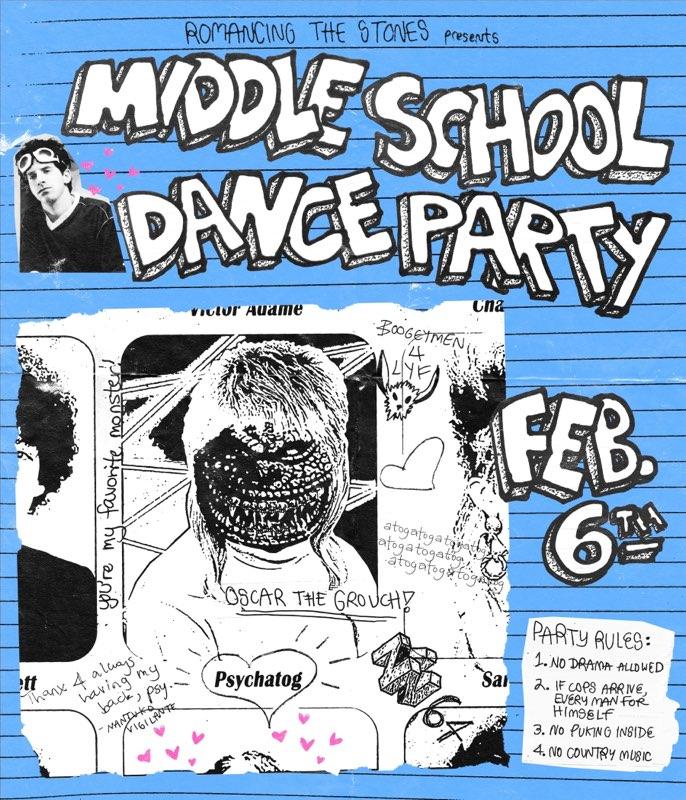 ROMANCING THE STONES presents
MIDDLE SCHOOL
DANCE PARTY
Victor Adame
Cha
BOOGEYMEN
4
LYF
you're my favorite monster!
FEB.
6TH
atogatogatogatog
atogatogatog
atogatogatogatog
OSCAR THE GROUCH!
Psychatog
ett
Sar
Thanx 4 always
having my
back, psy.
NANTUKO
VIGILANTE
PARTY RULES:
1. NO DRAMA ALLOWED
2. IF COPS ARRIVE,
EVERY MAN FOR
HIMSELF
3. NO PUKING INSIDE
4. NO COUNTRY MUSIC